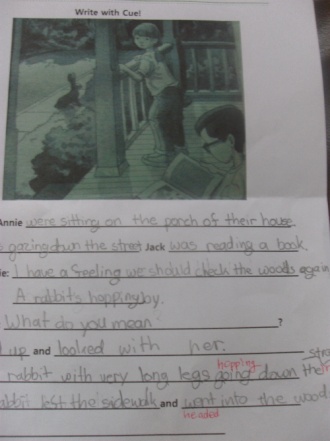 Write with Cue!
Annie were sitting on the porch of their house
gazing down the street Jack was reading a book.
ie: I have a feeling we should check the woods again
A rabbit's hopping by.
What do you mean ?
up and looked with her.
hopping
rabbit with very long legs going down the
abbit left the sidewalk and went into the wood
headed